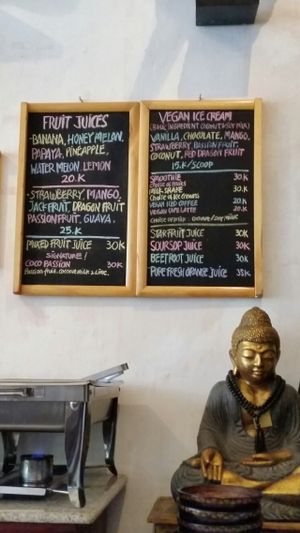 FRUIT JUICES
-BANANA, HONEY MELON,
PAPAYA, PINEAPPLE,
WATER MELON, LEMON
20.K
-STRAWBERRY, MANGO,
JACKFRUIT, DRAGON FRUIT
PASSIONFRUIT, GUAVA.
25.K
MIXED FRUIT JUICE 30K
SIGNATURE!
COCO PASSION 30K
Passion fruit, coconut milk & Lime.
VEGAN ICE CREAM
(BASIC INGREDIENT COCONUT & SOY MILK)
VANILLA, CHOCOLATE, MANGO,
STRAWBERRY, PASSION FRUIT,
COCONUT, RED DRAGON FRUIT
15.K/SCOOP
SMOOTHIE 30.K
Choice of fruits
MILK SHAKE 30.K
Choice of ice creams
VEGAN ICED COFFEE 20.K
VEGAN LATTE 20.K
STAR FRUIT JUICE 30K
SOURSOP JUICE 30K
BEETROOT JUICE 30K
PURE FRESH ORANGE JUICE 35K